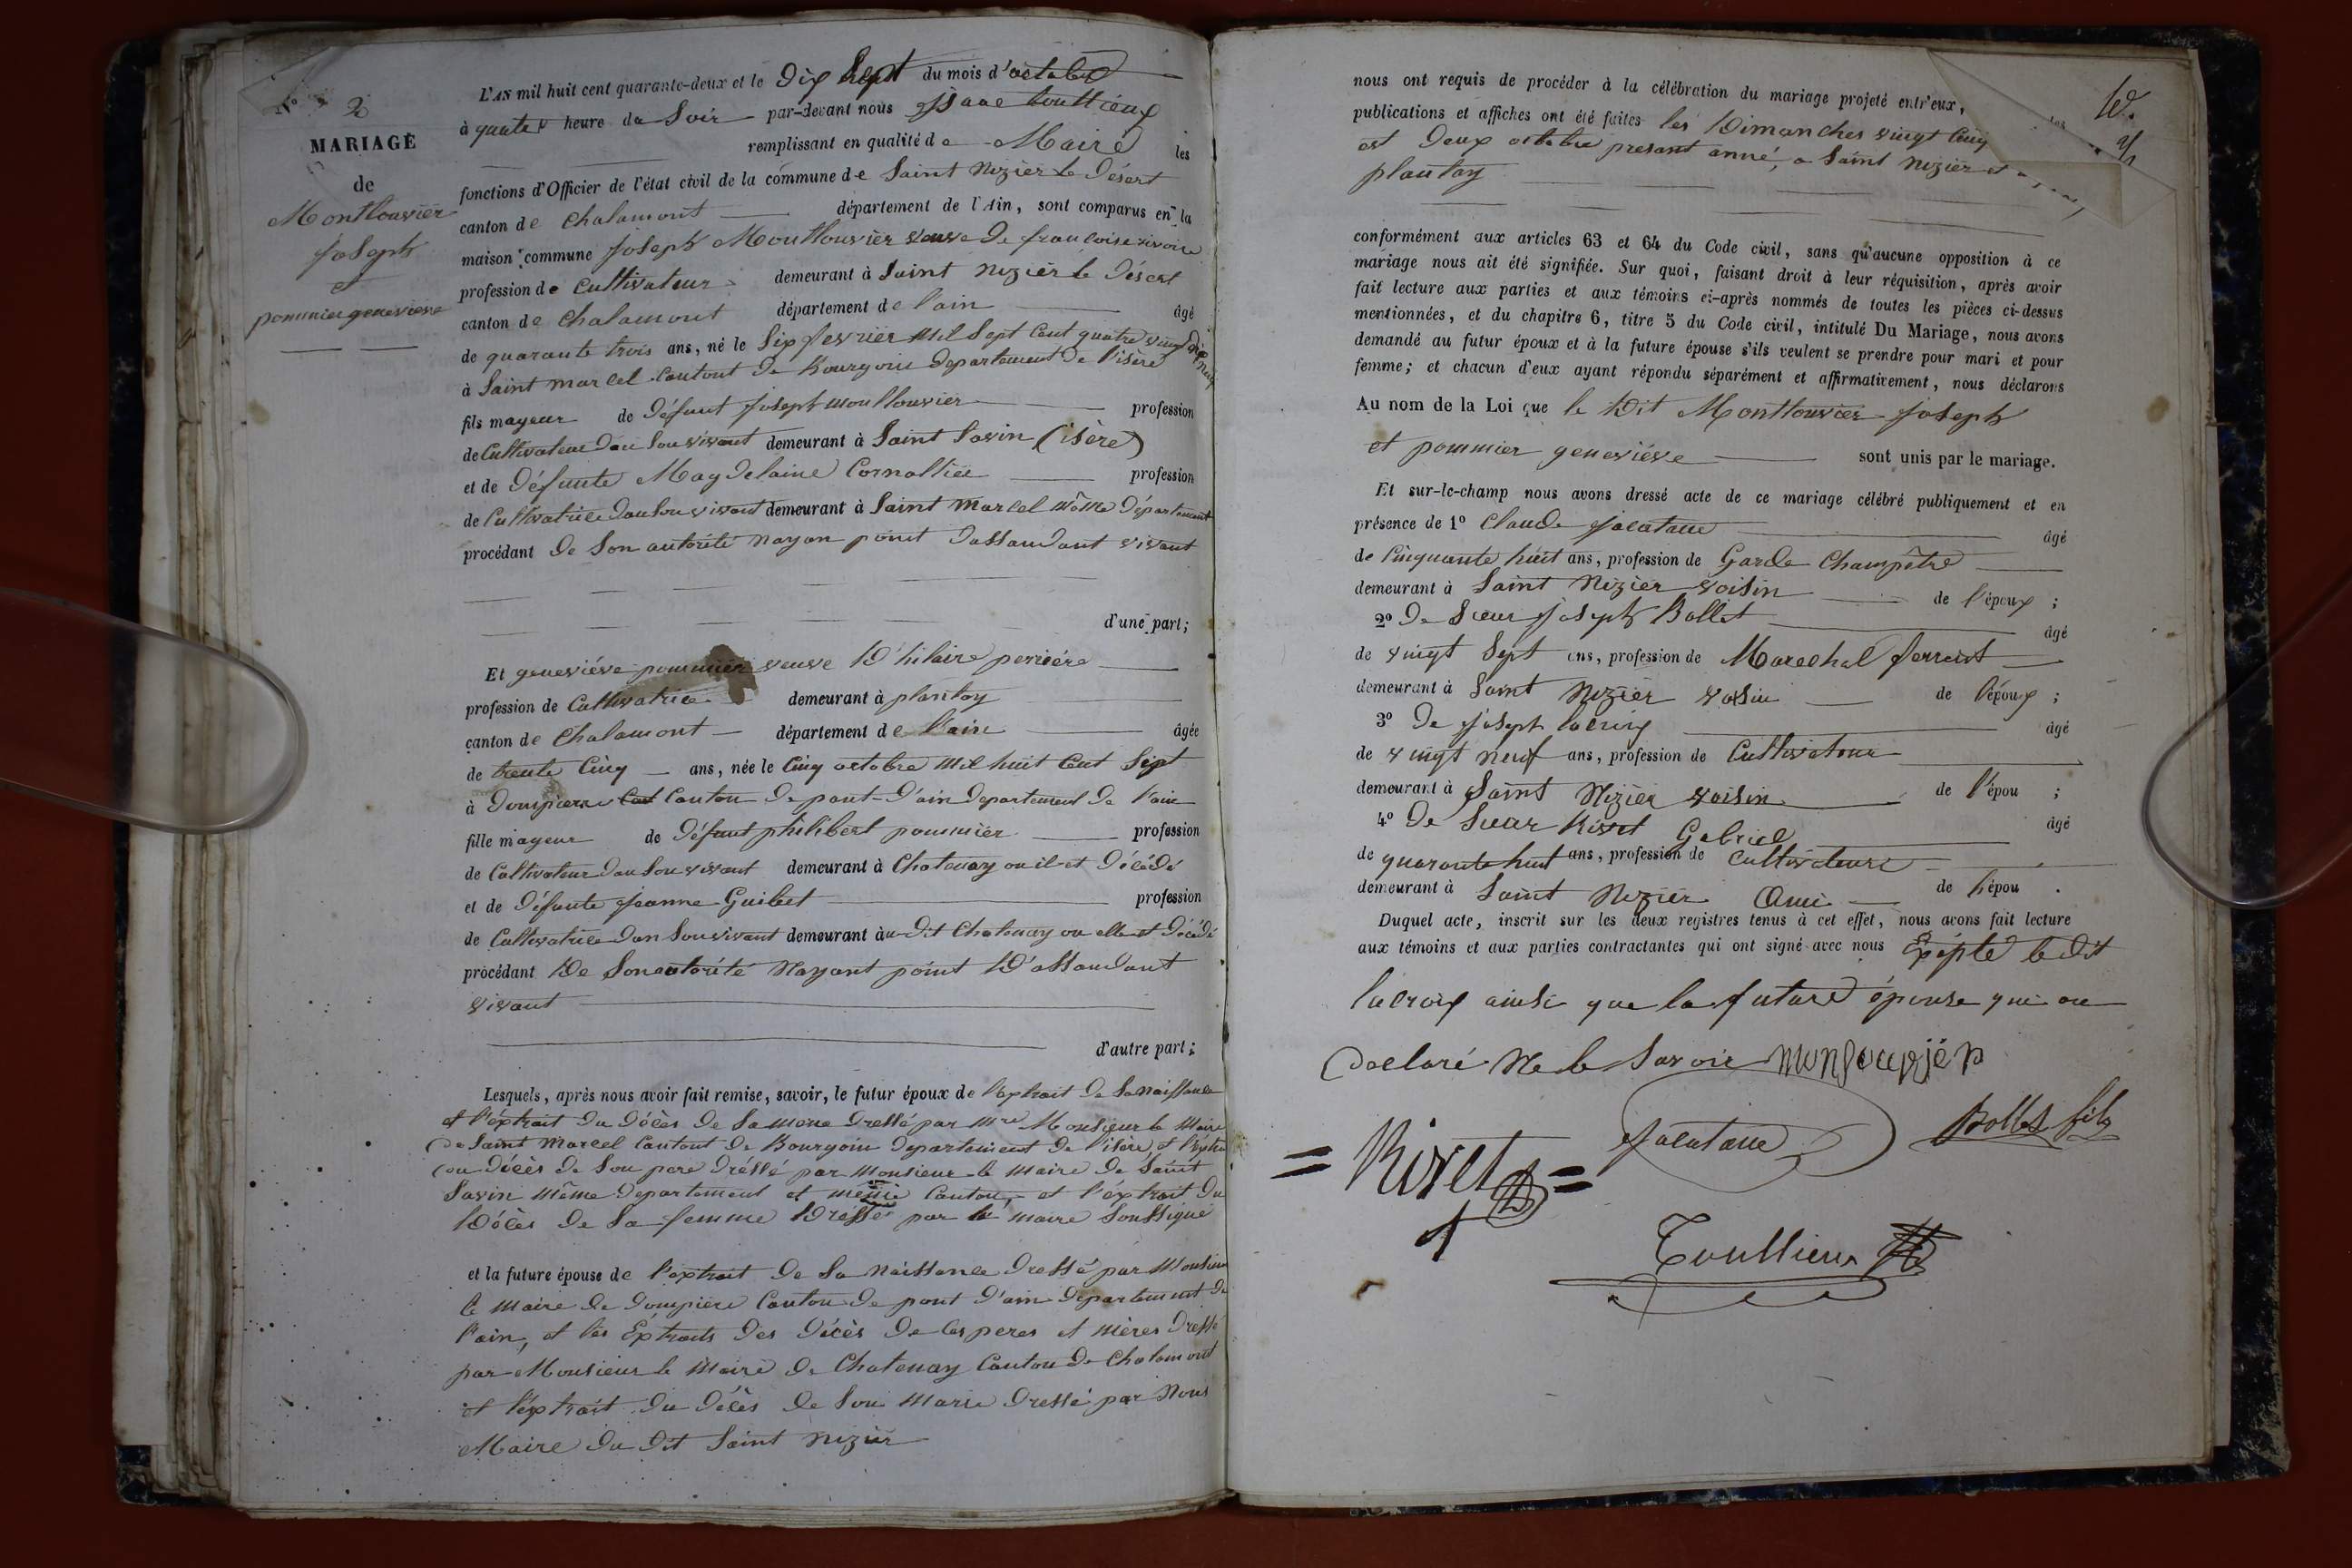 N° 2
MARIAGE
de
Montlouvier
joseph
et
pommier geneviève
L'AN mil huit cent quarante-deux et le dix sept du mois d'octobre
à quatre heure du Soir par-devant nous toullieux
remplissant en qualité de Maire les
fonctions d'Officier de l'état civil de la commune de Saint Nizier le Désert
canton de Chalamont département de l'Ain, sont comparus en la
maison commune joseph Montlouvier veuve de francoise rivoire
profession de Cultivateur demeurant à Saint nizier le Désert
canton de Chalamont département de l'ain âgé
de quarante trois ans, né le Six fevrier Mil Sept Cent quatre vingt dix neuf
à Saint marcel Cantont de Bourgoin departement de l'isère
fils mageur de défunt joseph montlouvier profession
de Cultivateur dan Sou vivant demeurant à Saint Savin (isère)
et de défunte Magdelaine Cornallice profession
de Cultivatrice dan Sou vivant demeurant à Saint Marcel même département
procédant de Son autorité nayan point dassandant vivant
d'une part;
Et geneviéve pommier veuve D'hilaire periére
profession de Cultivatrice demeurant à plantay
canton de Chalamont département de l'ain âgée
de trente Cinq ans, née le Cinq octobre Mil huit Cent Sept
à dompierre Canton de pont-d'ain departement de l'ain
fille mageur de défunt philibert pommier profession
de Cultivateur dan Sou vivant demeurant à Chatenay ou il et décédé
et de défunte jeanne Guibert profession
de Cultivatrice dan Sou vivant demeurant àu dit Chatenay ou elle et décédé
procédant De Son autorité Nayant point D'assandant
vivant
d'autre part;
Lesquels, après nous avoir fait remise, savoir, le futur époux de l'extrait de Sa naissance
et l'éxtrait du décès de Sa mère dressé par Monsieur le Maire
de Saint Marcel Cantont de Bourgoin departement de l'isère et l'éxtrait
du décès de Son pere dréssé par Monsieur le maire de Saint
Savin même departement et même Canton, et l'éxtrait du
Décès de Sa femme Dréssé par le maire Soussigné
et la future épouse de l'extrait de Sa Naissance dressé par Monsieur
le Maire de dompiere Canton de pont d'ain departement de
l'ain, et les Extraits des décès de les peres et mères dressé
par Monsieur le Maire de Chatenay Canton de Chalamont
et l'éxtrait du décès de Son Marie dressé par Nous
Maire du dit Saint nizier
nous ont requis de procéder à la célébration du mariage projeté entr'eux,
publications et affiches ont été faites les Dimanches vingt Cinq
et deux octobre present anné, a Saint nizier et
plantay
conformément aux articles 63 et 64 du Code civil, sans qu'aucune opposition à ce
mariage nous ait été signifiée. Sur quoi, faisant droit à leur réquisition, après avoir
fait lecture aux parties et aux témoins ci-après nommés de toutes les pièces ci-dessus
mentionnées, et du chapitre 6, titre 5 du Code civil, intitulé Du Mariage, nous avons
demandé au futur époux et à la future épouse s'ils veulent se prendre pour mari et pour
femme; et chacun d'eux ayant répondu séparément et affirmativement, nous déclarons
Au nom de la Loi que le Dit Montlouvier joseph
et pommier geneviève sont unis par le mariage.
Et sur-le-champ nous avons dressé acte de ce mariage célébré publiquement et en
présence de 1° Claude âgé
de Cinquante huit ans, profession de Garde Champêtre
demeurant à Saint Nizier voisin de l'époux ;
2° de Sieur joseph Bollet âgé
de vingt Sept ans, profession de Marechal ferrant
demeurant à Saint Nizier voisin de l'époux ;
3° de joseph lacroix âgé
de vingt neuf ans, profession de Cultivateur
demeurant à Saint Nizier voisin de l'épou ;
4° de Sieur Rivet Gabriel âgé
de quarante huit ans, profession de Cultivateur
demeurant à Saint Nizier Ami de l'épou .
Duquel acte, inscrit sur les deux registres tenus à cet effet, nous avons fait lecture
aux témoins et aux parties contractantes qui ont signé avec nous Exépté le dit
lacroix ainsi que la future épouse qui on
declaré Ne le Savoir
Bollet fils
= Rivet =
Toullieux